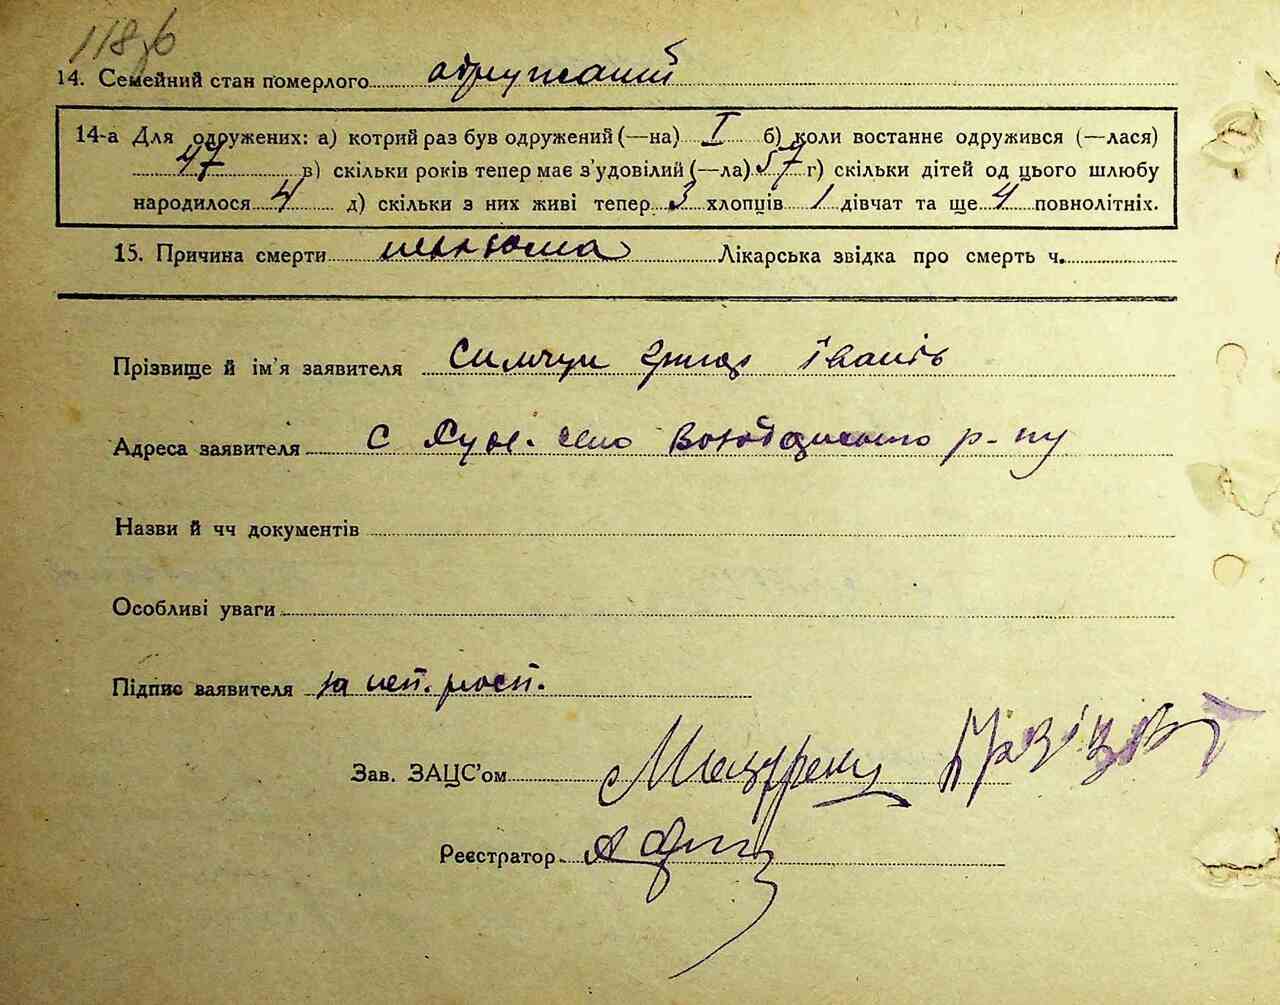 118зб
14. Семейний стан померлого одружаний
14-а Для одружених: а) котрий раз був одружений (—на) I б) коли востаннє одружився (—лася)
47 в) скільки років тепер має з’удовілий (—ла) 57 г) скільки дітей од цього шлюбу
народилося 4 д) скільки з них живі тепер 3 хлопців 1 дівчат та ще 4 повнолітніх.
15. Причина смерти Лікарська звідка про смерть ч.
Прізвище й ім’я заявителя Симчук Іванів
Адреса заявителя с село р-ну
Назви й чч документів
Особливі уваги
Підпис заявителя за неп. росп.
Зав. ЗАЦС’ом
Реєстратор